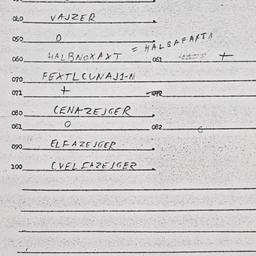 040 VAJZER
050 0
060 HALBNOXAXT = HALBAFAXTA 061 +
070 FEXTLCUNAJ1-N
071 + 072
080 CENAZEJGER
081 0 082 C
090 ELFAZEJGER
100 CVELFAZEJGER